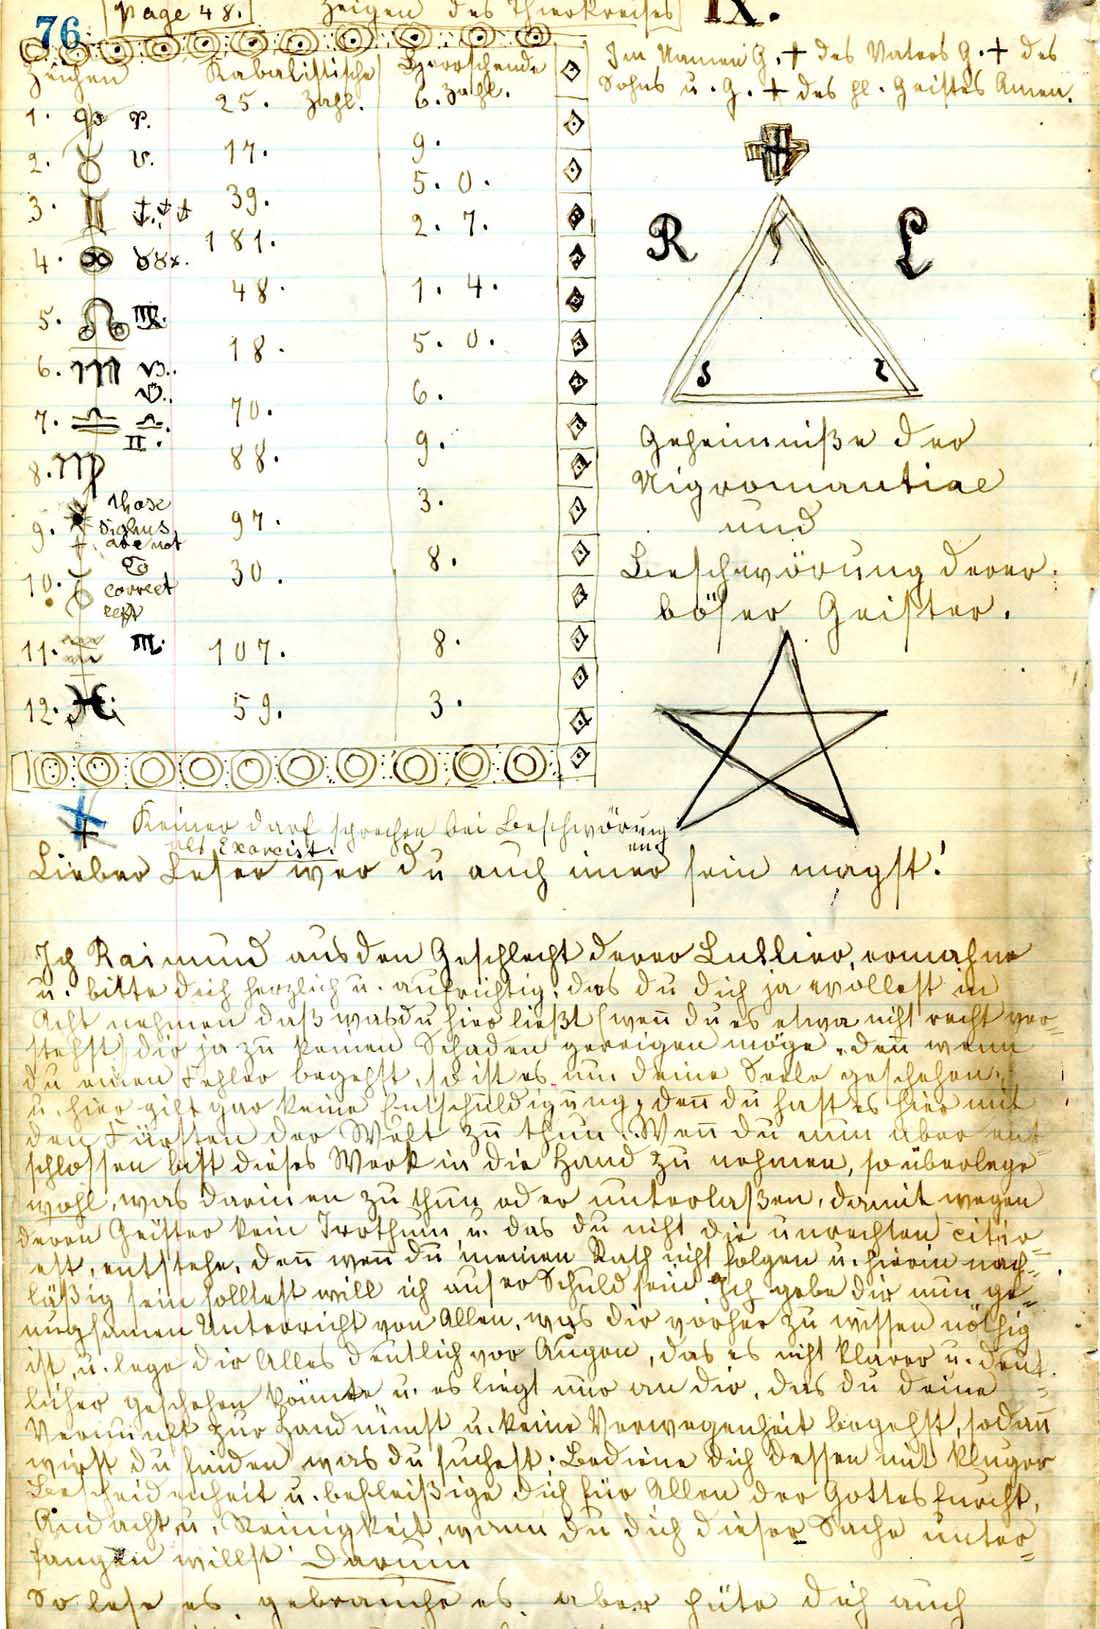 76
Page 48. Zeigen des Thierkreises IX.
Zeichen Kabalistische Zahl. Herrschende Zahl.
1. 25. 6.
2. 17. 9.
3. 39. 5. 0.
4. 181. 2. 7.
5. 48. 1. 4.
6. 18. 5. 0.
7. 70. 6.
8. 88. 9.
9. 97. 3.
10. 30. 8.
11. 107. 8.
12. 59. 3.
those
are not
correct
Im Namen G. + des Vaters G. + des
Sohns u. G. + des hl. Geistes Amen.
R L
Geheimniße der
Nigromantiae
und
Beschwörung derer
böser Geister.
Keiner darf sprechen bei Beschwörung
als Exorcist.
Lieber Leser wer du auch imer sein magst!
Ich Raimund aus den Geschlecht derer Lullier, ermahne
u. bitte dich herzlich u. aufrichtig, das du dich ja wollest in
Acht nehmen daß was du hier ließt (wen̄ du es etwa niht recht ver=
stehst) dir ja zu keinen Schaden gereigen möge, den̄ wenn
du einen Fehler begehst, so ist es um deine Seele geschehen,
u. hier gilt gar keine Entschuldigung; den̄ du hast es hier mit
den Fürsten der Welt zu thun. Wen̄ du nun aber ent
schlossen bist dieses Werk in die Hand zu nehmen, so überlege
wohl, was darinen zu thun oder unterlaßen, damit wegen
deren Geister kein Irrthum u. das du niht die unrechten citir=
est, entstehe, den̄ wen̄ du meinen Rath niht folgen u. hierin nach=
läßig sein solltest will ich auser Schuld sein. Ich gebe dir nun ge=
nugsamen Unterricht von Allen, was dir vorher zu wissen nöthig
ist, u. lege dir Alles deutlich vor Augen, das es niht klarer u. deut=
licher geschehen könnte u. es liegt nur an dir, das du deine
Vernunft zur Hand nimst u. keine Verwegenheit begehst, sodan̄
wirst du finden was du suchest. Bediene dich dessen mit kluger
Bescheidenheit u. befleißige dich für Allen der Gottesfurcht,
Andacht u. Reinigkeit, wann du dich dieser Sache unter=
fangen willst. Darum
So lese es, gebrauche es, aber hüte dich auch